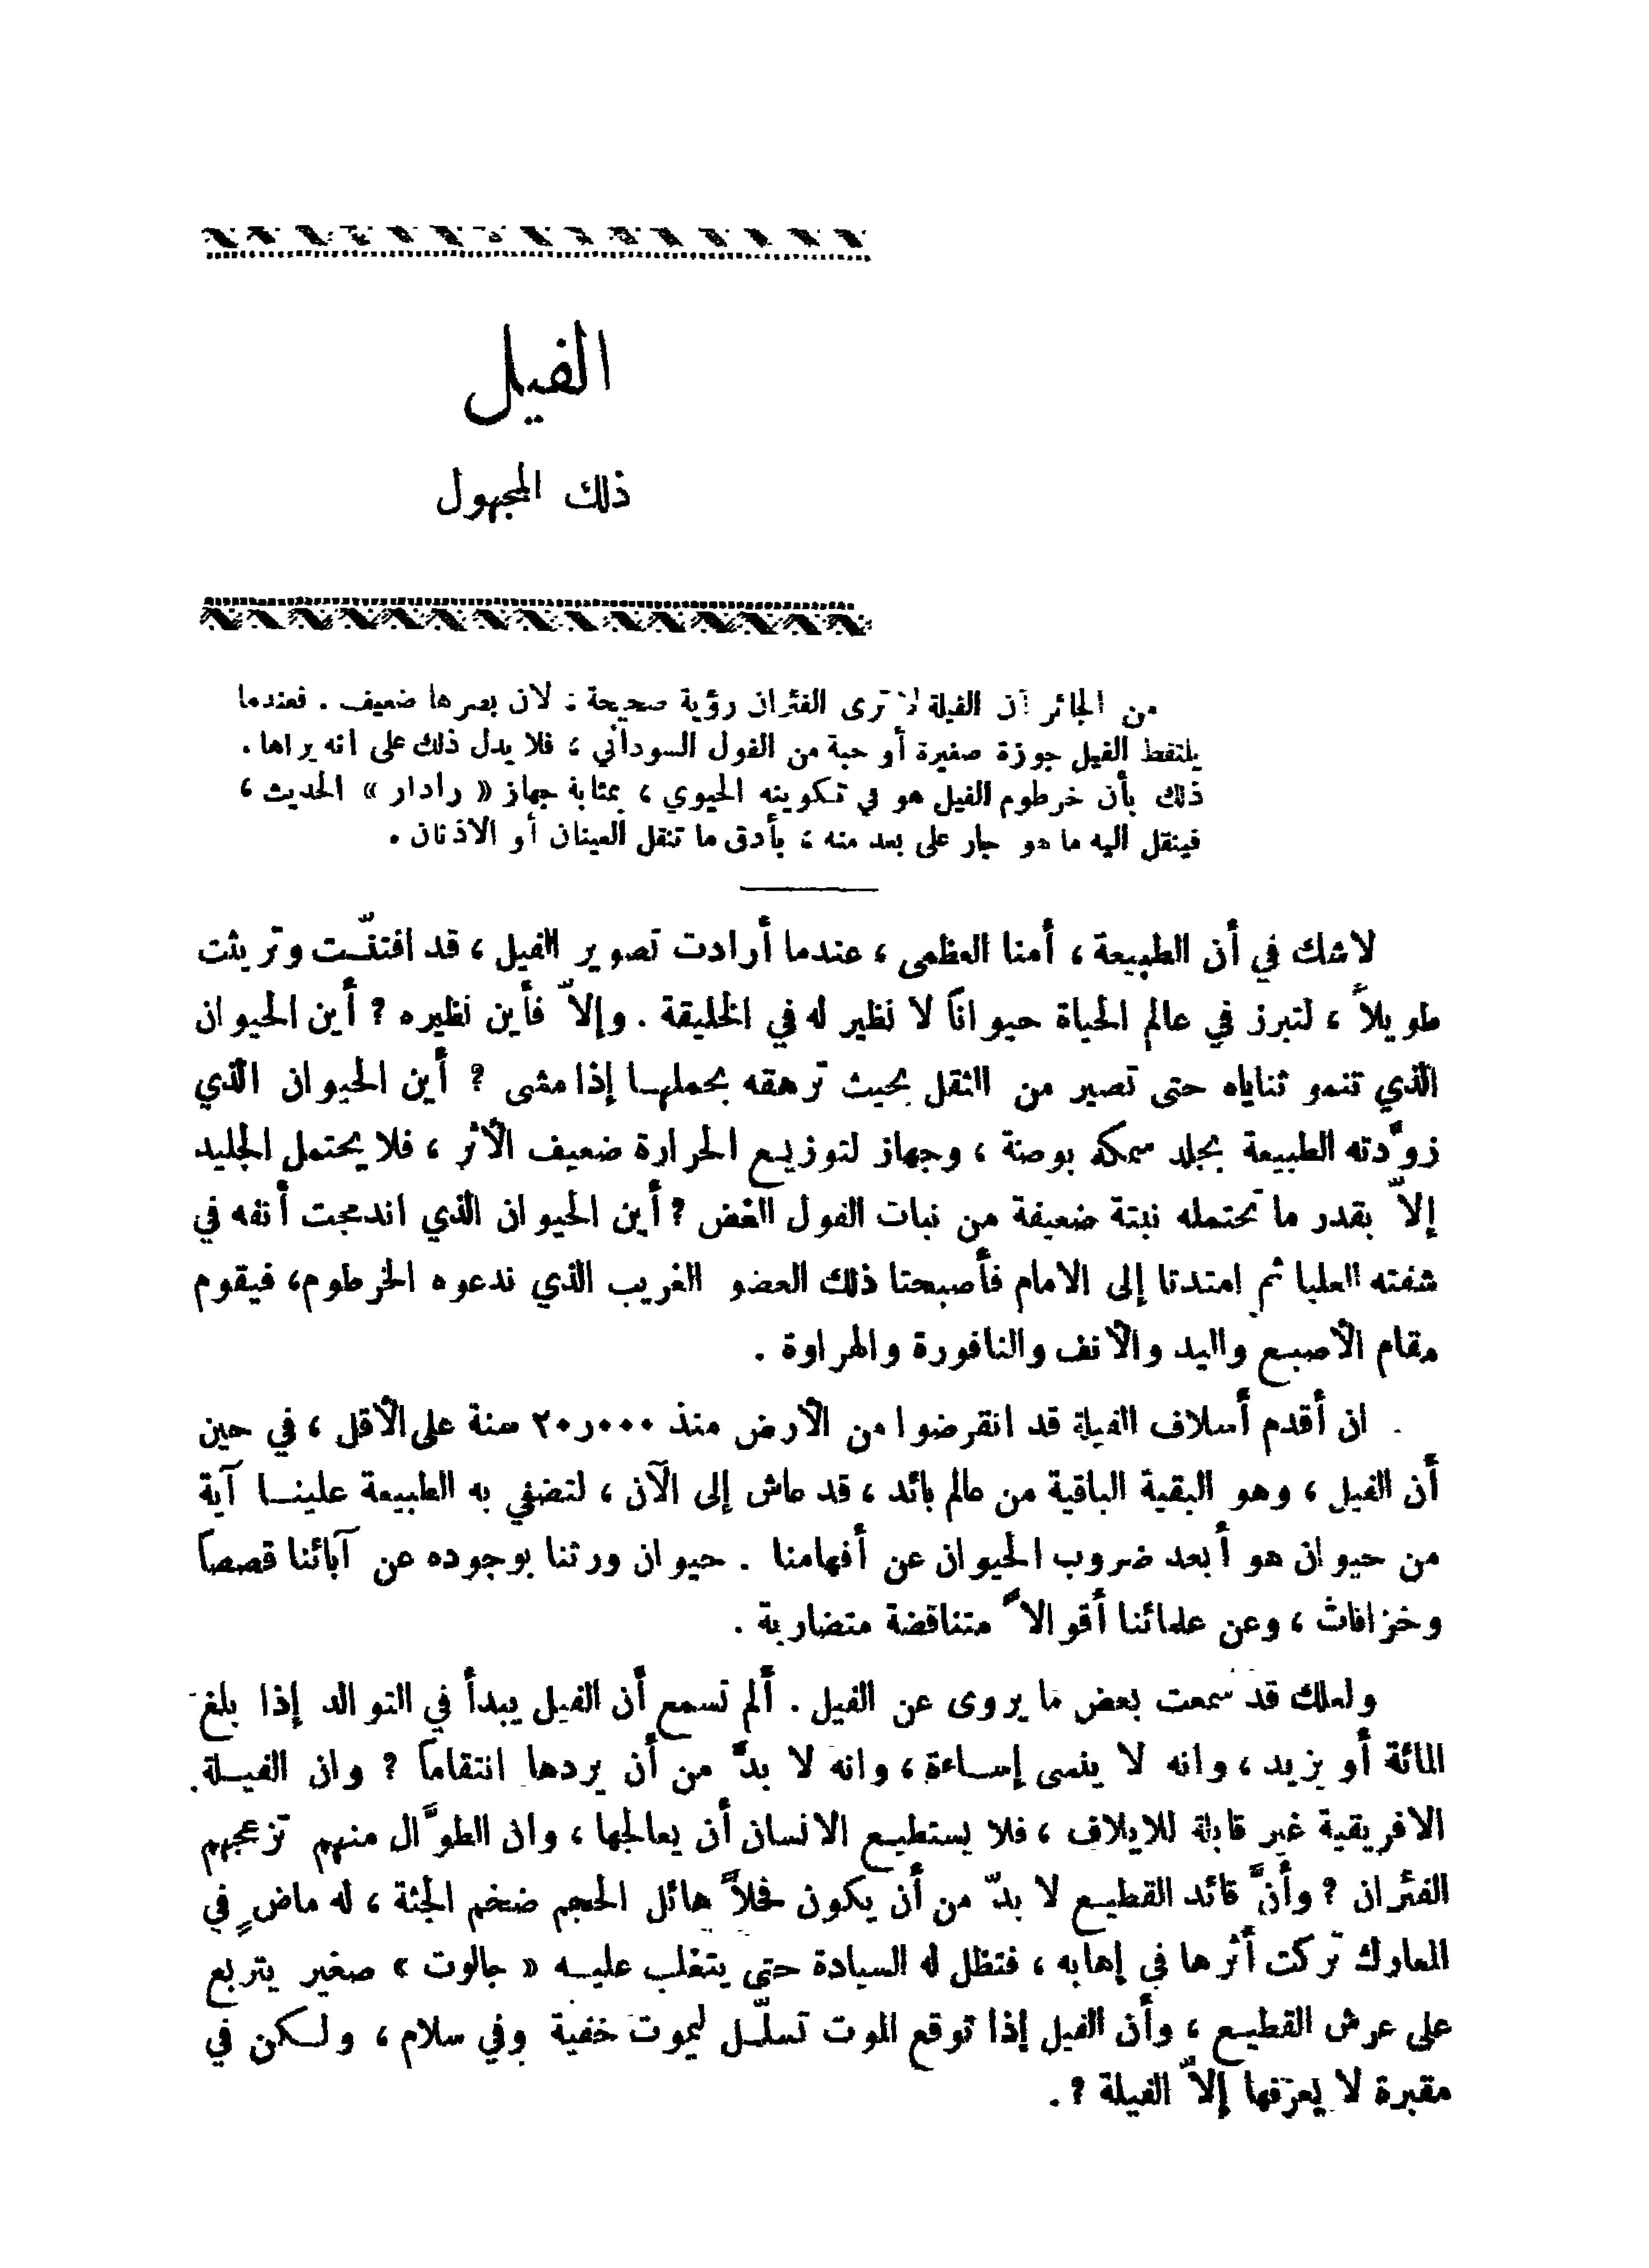 الفيل
ذلك المجهول
من الجائر أن الفيلة لا ترى الفئران رؤية صحيحة ؛ لان بصرها ضعيف . فعندما
يلتقط الفيل جوزة صغيرة أو حبة من الفول السوداني ؛ فلا يدل ذلك على انه يراها .
ذلك بأن خرطوم الفيل هو في تكوينه الحيوي ، بمثابة جهاز « رادار » الحديث ،
فينقل اليه ما هو جار على بعد منه ؛ بأدق ما تنقل العينان أو الاذنان .
لاشك في أن الطبيعة ، أمنا العظمى ، عندما أرادت تصوير الفيل ، قد افتنّت وتريثت
طويلاً ، لتبرز في عالم الحياة حيواناً لا نظير له في الخليقة . وإلاّ فأين نظيره ؟ أين الحيوان
الذي تنمو ثناياه حتى تصير من الثقل بحيث ترهقه بحملهـا إذا مشى ؟ أين الحيوان الذي
زوَّدته الطبيعة بجلد سمكه بوصنة ، وجهاز لتوزيـع الحرارة ضعيف الأثر ، فلا يحتمل الجليد
إلاّ بقدر ما تحتمله نبتة ضعيفة من نبات الفول الغض ؟ أين الحيوان الذي اندمجت أنفه في
شفته العليا ثم امتدتا إلى الامام فأصبحتا ذلك العضو الغريب الذي ندعوه الخرطوم، فيقوم
مقام الأصبـع واليد والأنف والنافورة والهراوة .
ان أقدم أسلاف الفيلة قد انقرضوا من الأرض منذ ٢٠ر٠٠٠ سنة على الأقل ، في حين
أن الفيل ، وهو البقية الباقية من عالم بائد ، قد عاش إلى الآن ، لتضفي به الطبيعة علينـا آية
من حيوان هو أبعد ضروب الحيوان عن أفهامنا . حيوان ورثنا بوجوده عن آبائنا قصصاً
وخزافات ، وعن علمائنا أقوالاً متناقضة متضاربة .
ولعلك قد سمعت بعض ما يروى عن الفيل . ألم تسمع أن الفيل يبدأ في التوالد إذا بلغ
المائة أو يزيد ، وانه لا ينسى إسـاءة ، وانه لا بدَّ من أن يردها انتقاماً ؟ وان الفيـلة
الافريقية غير قابلة للايلاف ، فلا يستطيـع الانسان أن يعالجها ، وان الطوَّال منهم تزعجهم
الفئران ؟ وأنَّ قائد القطيـع لا بدّ من أن يكون فحلاً هائل الحجم ضخم الجثة ، له ماضٍ في
المعارك تركت أثرها في إهابه ، فتظل له السيادة حتى يتغلب عليـه « جالوت » صغير يتربع
على عرش القطيـع ، وأن الفيل إذا توقع الموت تسلّـل ليموت خفية وفي سلام ، ولـكن في
مقبرة لا يعرفها إلاّ الفيلة ؟ .